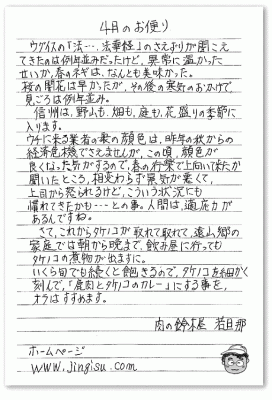 4月のお便り
ウグイスの「法…、法華経」のさえずりが聞こえ
てきたのは例年並みだったけど、異常に温かった
せいか、春のネギは、なんとも美味かった。
桜の開花は早かったが、その後の寒気のおかげで、
見ごろは例年並み。
信州は、野山も、畑も、庭も、花盛りの季節に
入ります。
ウチに来る業者の衆の顔色は、昨年の秋からの
経済危機でさえませんが、この頃、顔色が
良くなった気がするので、春の行楽で上向いて来たか
聞いたところ、相変わらず景気が悪くて、
上司から怒られるけど、こういう状況にも
慣れてきたかも・・・との事。人間は、適応力が
あるんですね。
さて、これからタケノコが取れて取れて、遠山郷の
家庭では朝から晩まで、飲み屋に行っても
タケノコの煮物が出ますに。
いくら旬でも続くと飽きるので、タケノコを細かく
刻んで、「鹿肉とタケノコのカレー」にする事を、
オラはすすめます。
肉の鈴木屋 若旦那
ホームページ
www.jingisu.com